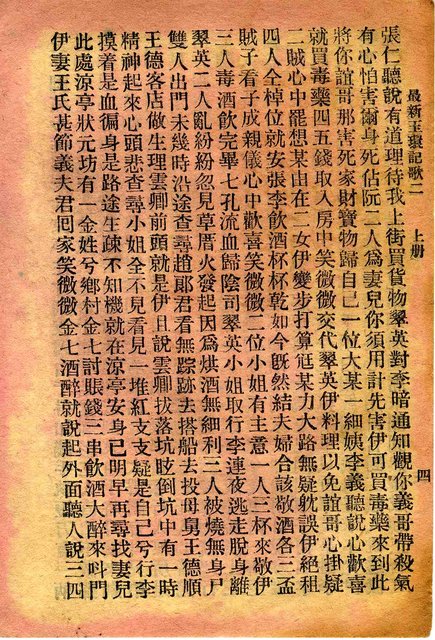 最新玉裴記歌二　上册
四
張仁聽說有道理待我上街買貨物翠英對李暗通知觀你義哥帶殺氣
有心怕害爾身死佔阮二人為妻兒你須用計先害伊可買毒藥來到此
將你誼哥那害死家財寶物歸自己一位大某一細姨李義聽說心歡喜
就買毒藥四五錢取入房中笑微微交代翠英伊料理以免誼哥心掛疑
二賊心中罷想某由在二女伊變步打算尫某力大路無疑躭誤伊絕租
四人全棹位就安張李飲酒杯杯乾如今旣然結夫婦合該敬酒各三盃
賊子看子成親儀心中歡喜笑微微二位小姐有主意一人三杯來敬伊
三人毒酒飲完畢七孔流血歸陰司翠英小姐取行李連夜逃走脫身離
翠英二人亂紛紛忽見草厝火發起因爲烘酒無細利三人被燒無身尸
雙人出門未幾時沿途查尋趙郎君看無踪跡去搭船去投母舅王德順
王德客店做生理雲卿前頭就是伊且說雲卿拔落坑眩倒坑中有一時
精神起來心頭悲查尋小姐全不見看見一堆紅支支疑是自己兮行李
摸着是血徧身是路途生疎不知機就在涼亭安身已明早再尋找妻兒
此處涼亭狀元坊有一金姓兮鄉村金七討賬錢三串飲酒大醉來呌門
伊妻王氏甚節義夫君囘家笑微微金七酒醉就說起外面聽人說三四